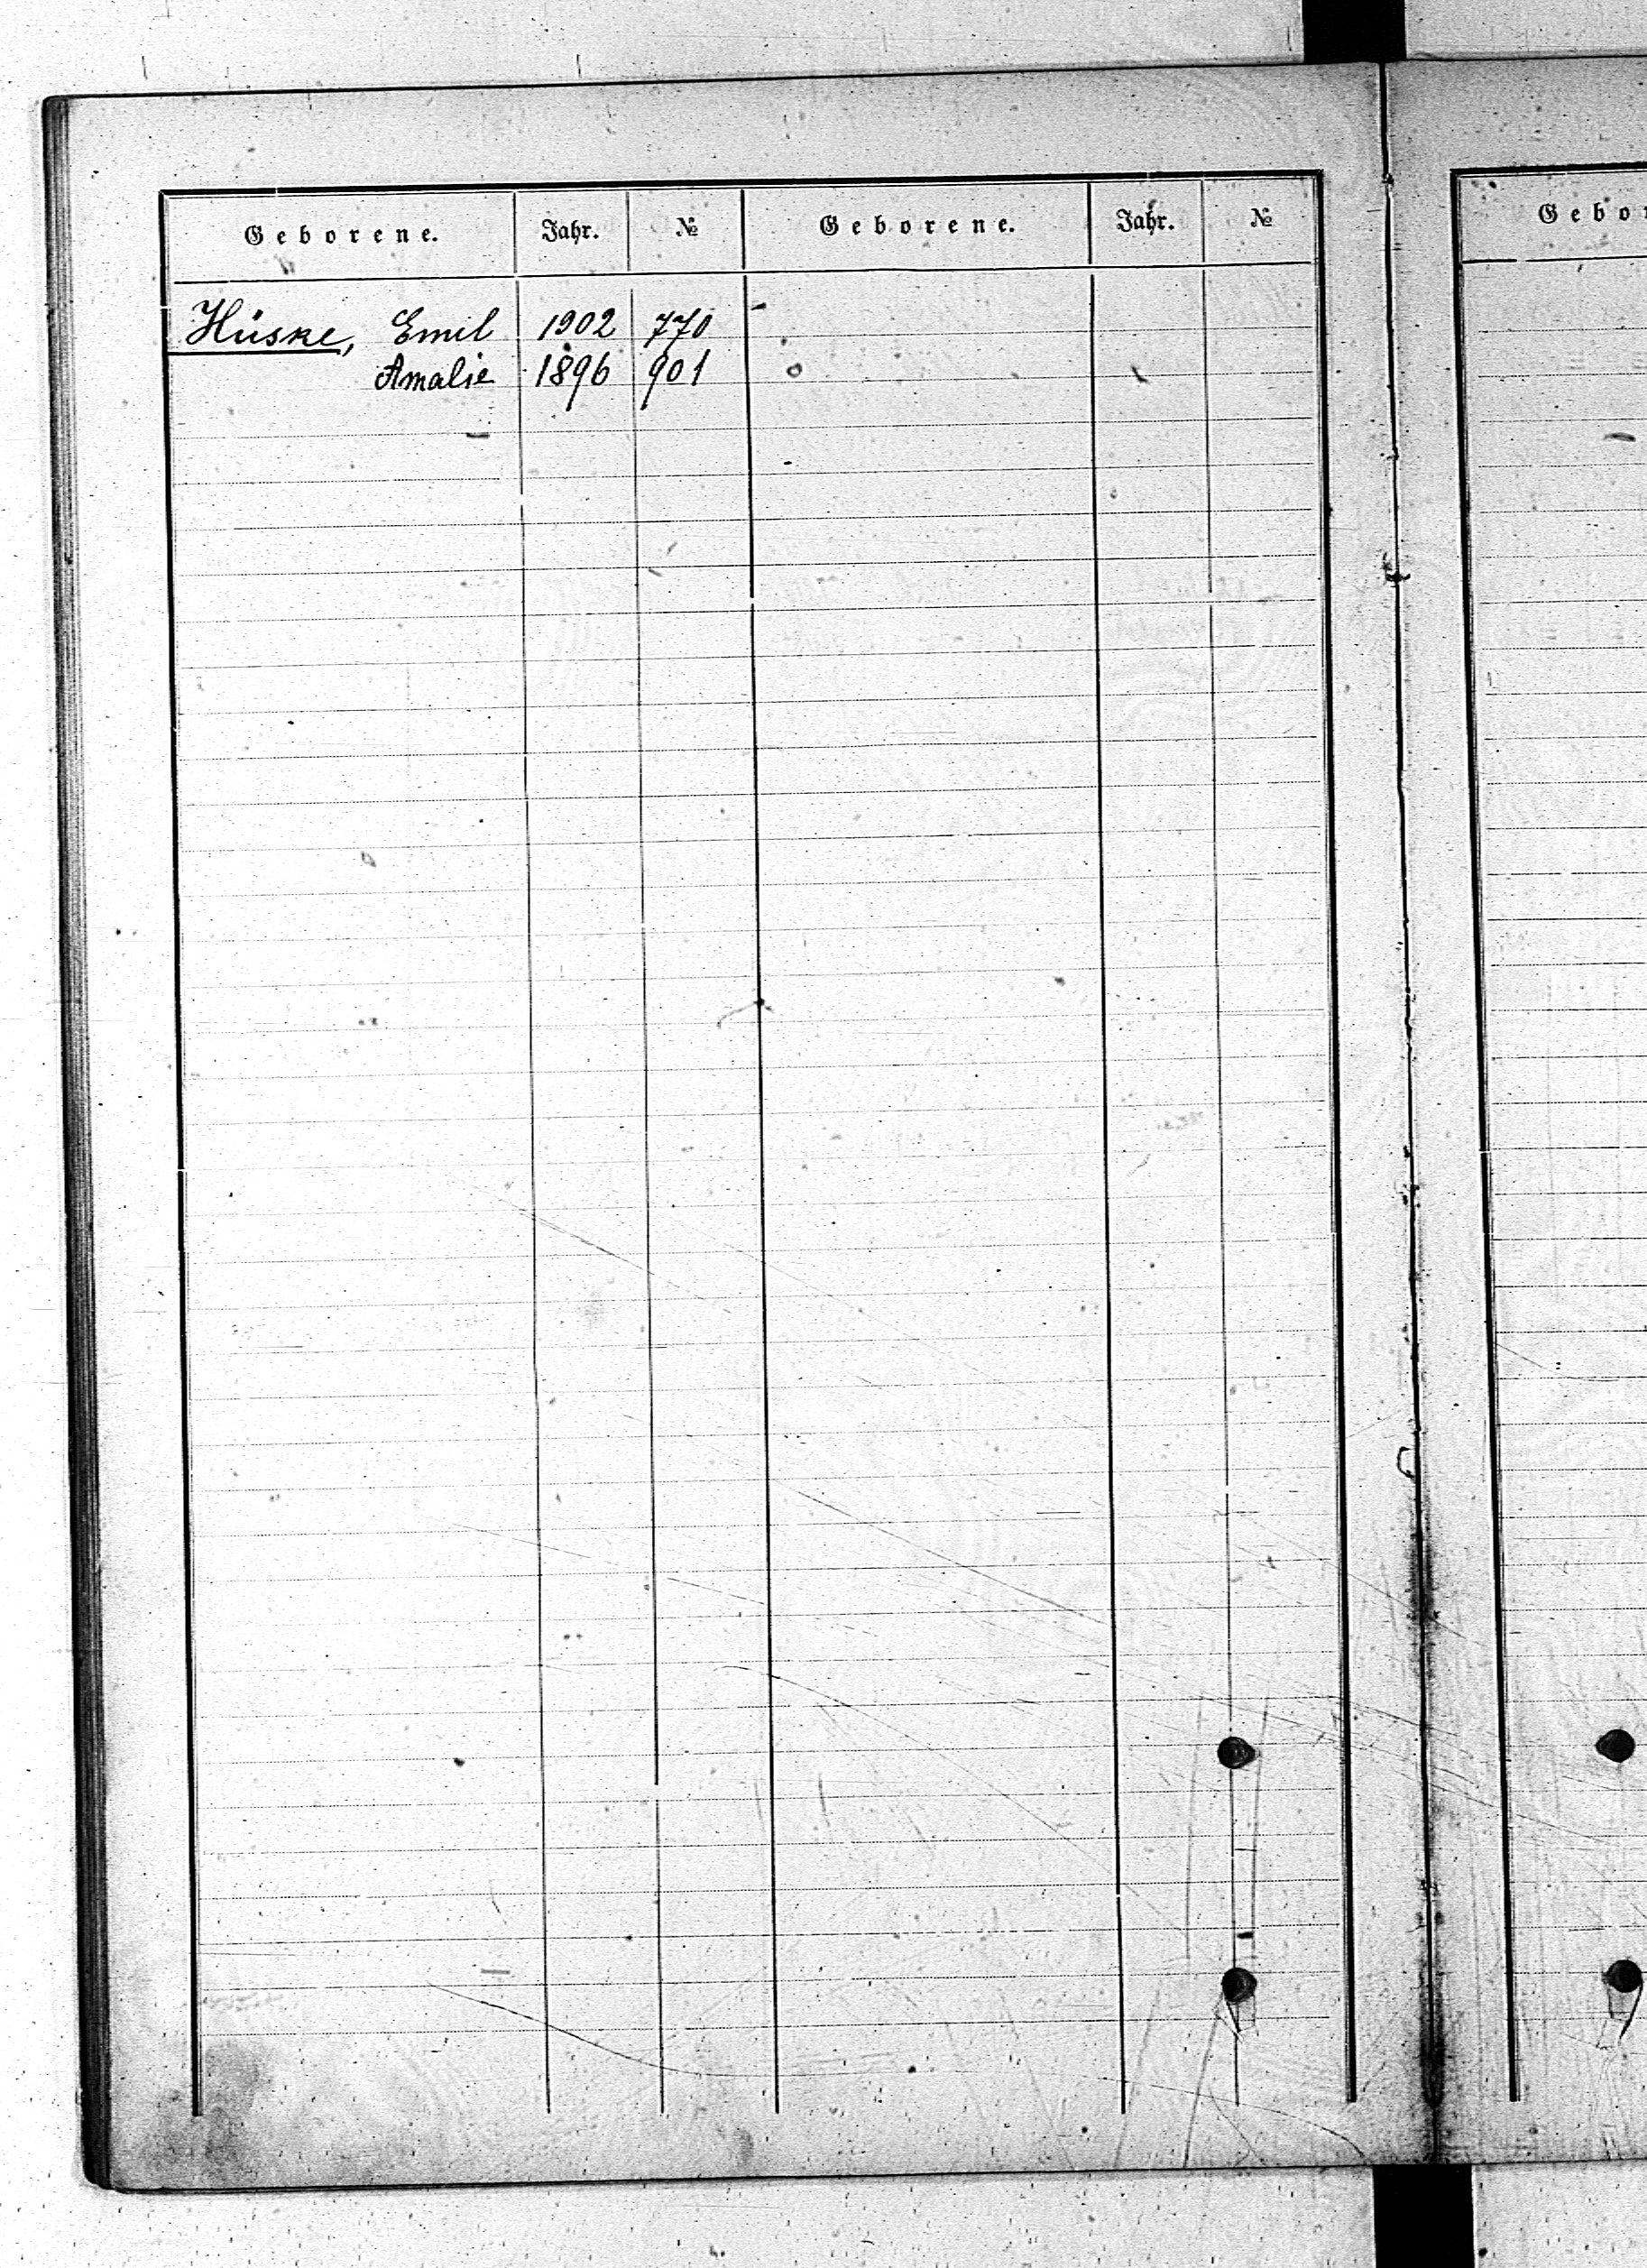 Geborene. Jahr. № Geborene. Jahr. №
Hüske, Emil 1902 770
Amalie 1896 901